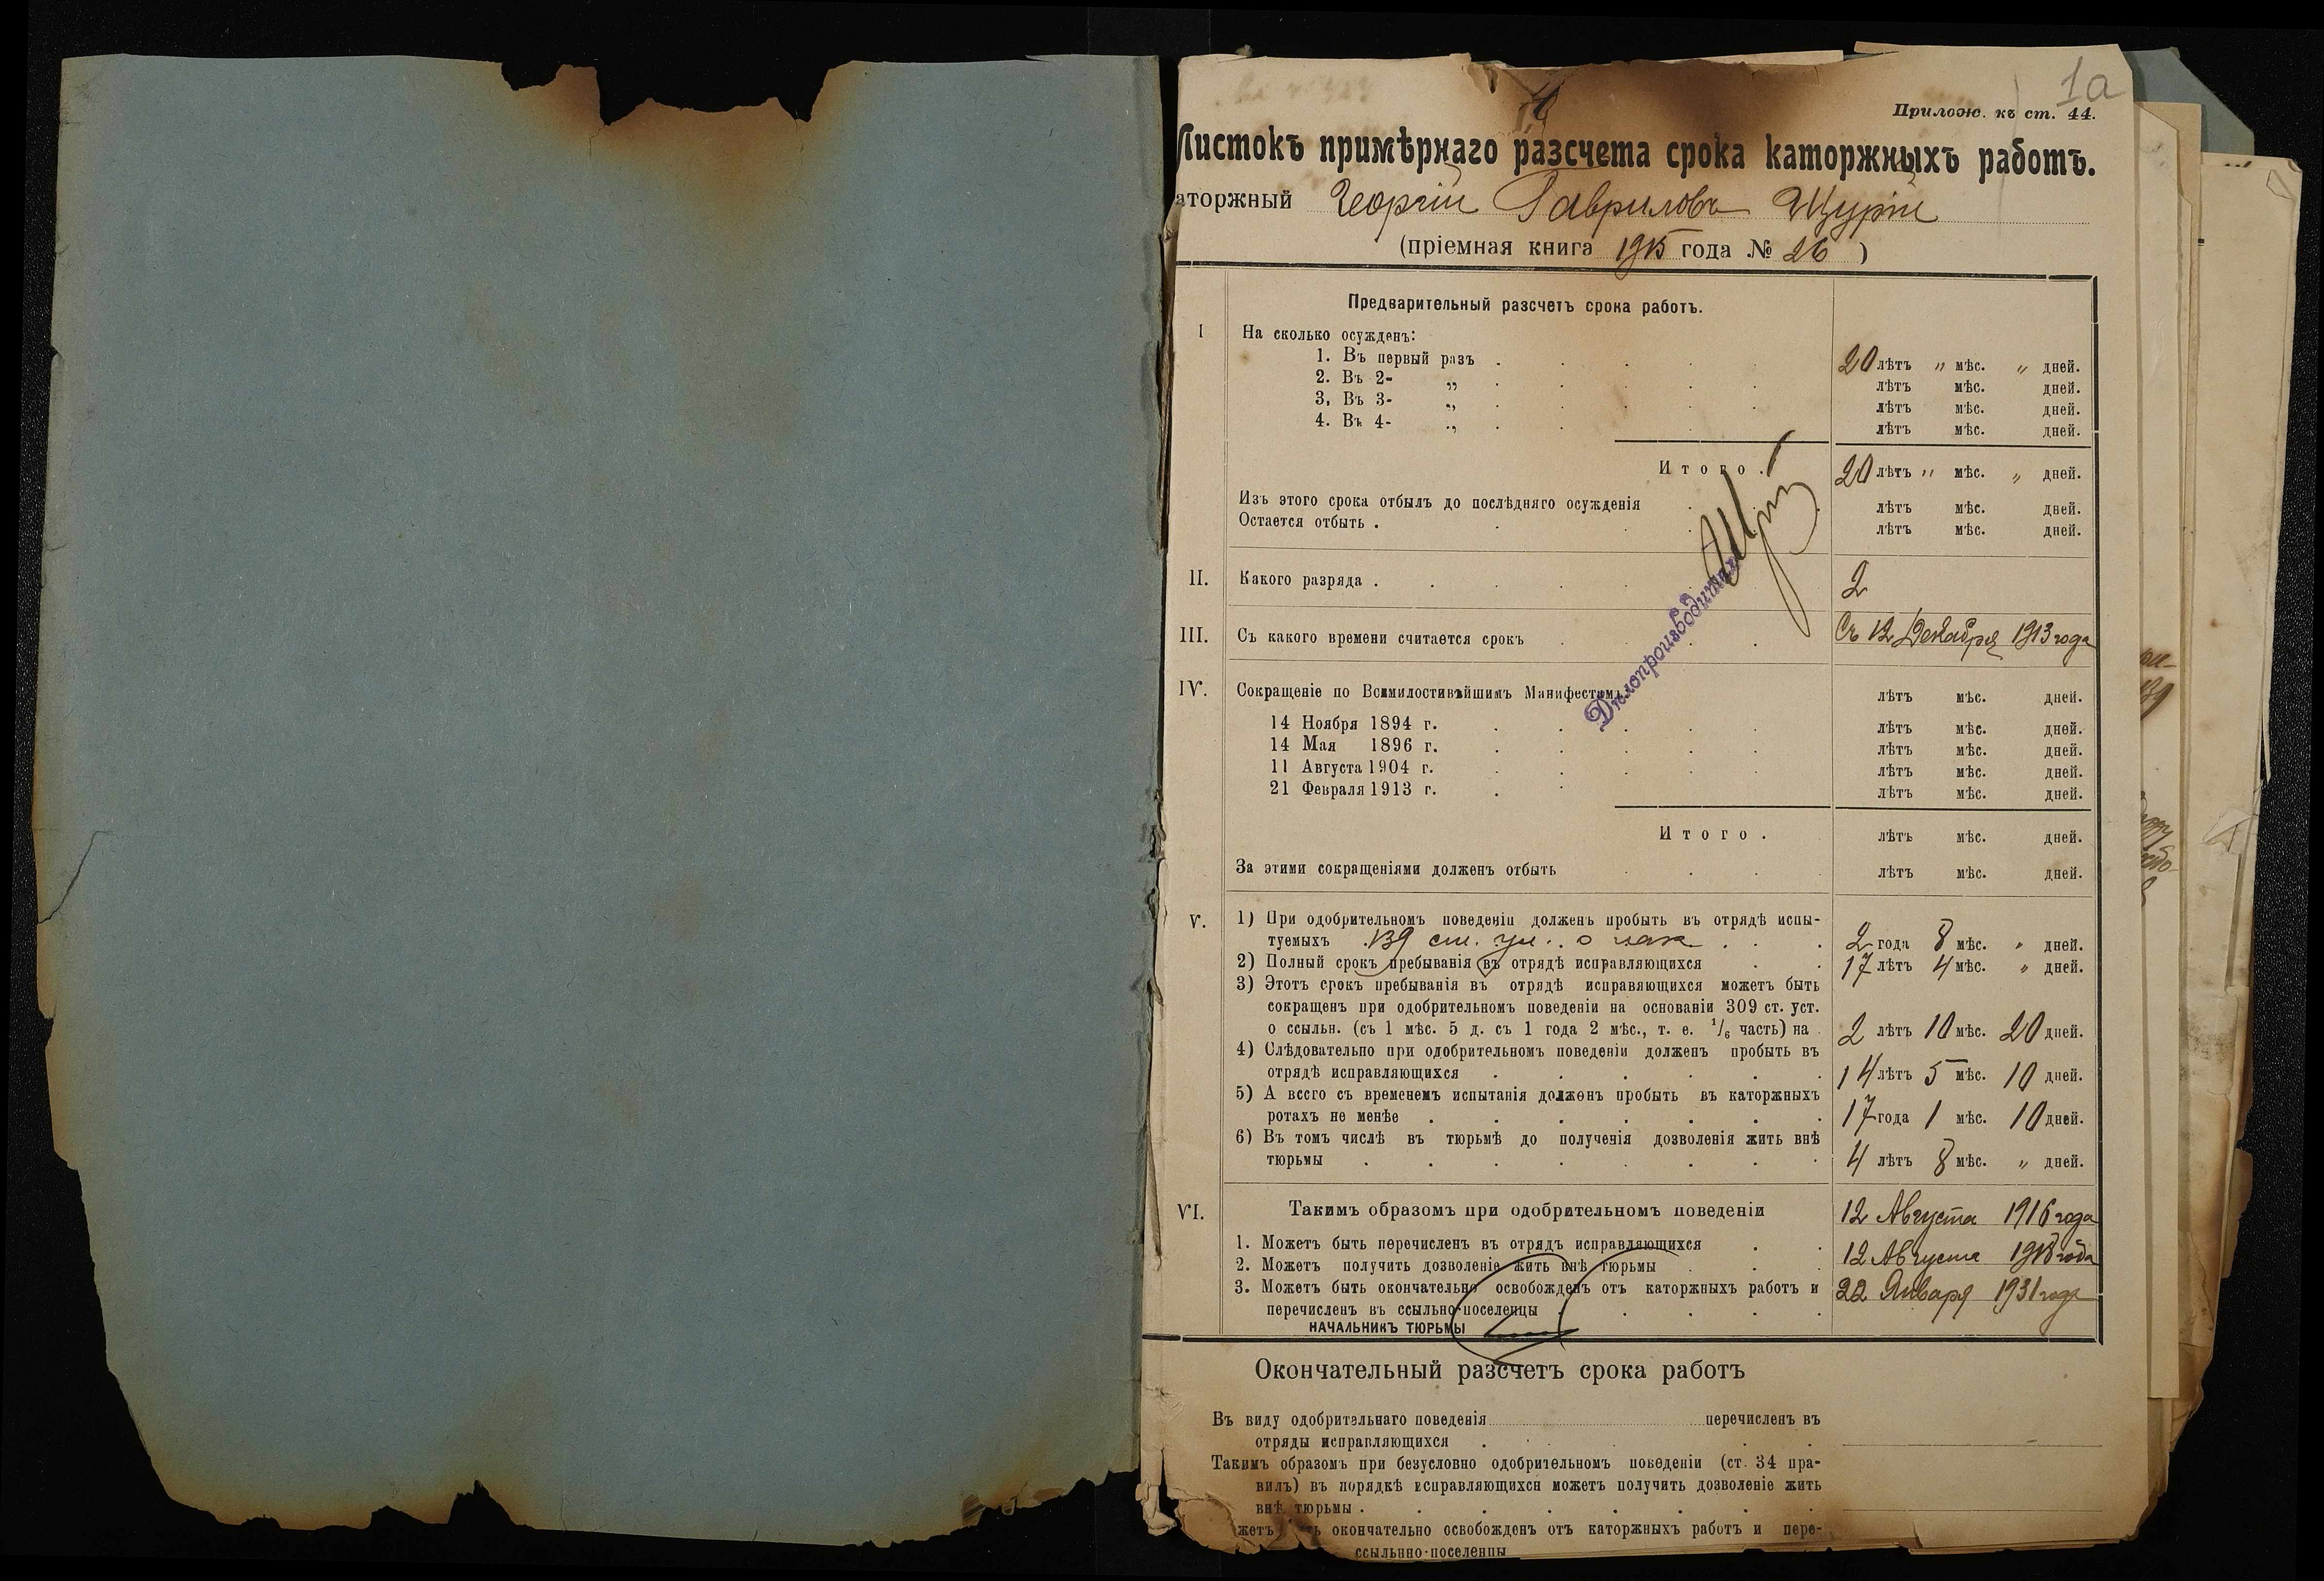 1а
Прилож. къ ст. 44.
Листокъ примѣрнаго разсчета срока каторжныхъ работъ.
аторжный Георгій Гавриловъ Щурій
(пріемная книга 1915 года № 26 )
Предварительный разсчетъ срока работъ.
I На сколько осужденъ:
1. Въ первый разъ . 20 лѣтъ „ мѣс. „ дней.
2. Въ 2- „ лѣтъ мѣс. дней.
3, Въ 3- „ лѣтъ мѣс. дней.
4. Въ 4- „ лѣтъ мѣс. дней.
Итого. 20 лѣтъ „ мѣс. „ дней.
Изъ этого срока отбылъ до послѣдняго осужденія лѣтъ мѣс. дней.
Остается отбыть . лѣтъ мѣс. дней.
II. Какого разряда . 2
III. Съ какого времени считается срокъ Съ 12 Декабря 1913 года
Дѣлопроизводитель
IV. Сокращеніе по Всемилостивѣйшимъ Манифестамъ: лѣтъ мѣс. дней.
14 Ноября 1894 г. лѣтъ мѣс. дней.
14 Мая 1896 г. лѣтъ мѣс. дней.
11 Августа 1904 г. лѣтъ мѣс. дней.
21 Февраля 1913 г. лѣтъ мѣс. дней.
Итого. лѣтъ мѣс. дней.
За этими сокращеніями долженъ отбыть лѣтъ мѣс. дней.
V. 1) При одобрительномъ поведеніи долженъ пробыть въ отрядѣ испы-
туемыхъ 139 ст. ул. о нак. 2 года 8 мѣс. „ дней.
2) Полный срокъ пребыванія въ отрядѣ исправляющихся 17 лѣтъ 4 мѣс. „ дней.
3) Этотъ срокъ пребыванія въ отрядѣ исправяющихся можетъ быть
сокращенъ при одобрительномъ поведеніи на основаніи 309 ст. уст.
о ссыльн. (съ 1 мѣс. 5 д. съ 1 года 2 мѣс., т. е. 1/6 часть) на 2 лѣтъ 10 мѣс. 20 дней.
4) Слѣдовательно при одобрительномъ поведеніи долженъ пробыть въ
отрядѣ исправляющихся 14 лѣтъ 5 мѣс. 10 дней.
5) А всего съ временемъ испытанія долженъ пробыть въ каторжныхъ
ротахъ не менѣе 17 года 1 мѣс. 10 дней.
6) Въ томъ числѣ въ тюрьмѣ до полученія дозволенія жить внѣ
тюрьмы 4 лѣтъ 8 мѣс. „ дней.
VI. Такимъ образомъ при одобрительномъ поведеніи 12 Августа 1916 года
1. Можетъ быть перечисленъ въ отрядъ исправляющихся
2. Можетъ получить дозволеніе жить внѣ тюрьмы 12 Августа 1918 года
3. Можетъ быть окончательно освобожденъ отъ каторжныхъ работъ и 22 Января 1931 года
перечисленъ въ ссыльно-поселенцы
НАЧАЛЬНИКЪ ТЮРЬМЫ
Окончательный разсчетъ срока работъ
Въ виду одобрительнаго поведенія перечисленъ въ
отряды исправляющихся
Такимъ образомъ при безусловно одобрительномъ поведеніи (ст. 34 пра-
вилъ) въ порядкѣ исправляющихся можетъ получить дозволеніе жить
внѣ тюрьмы .
жетъ окончательно освобожденъ отъ каторжныхъ работъ и пере-
ссыльно-поселенцы